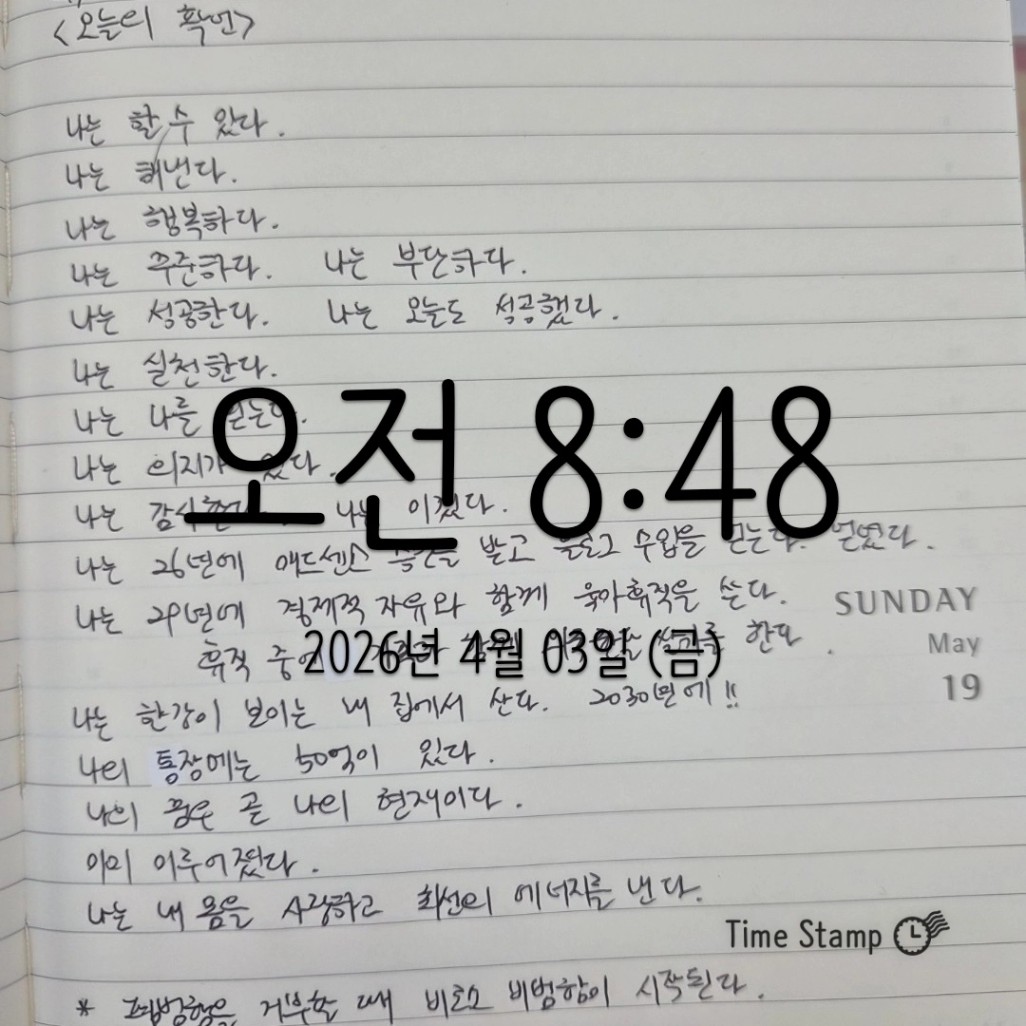 <오늘의 확언>
나는 할 수 있다.
나는 해낸다.
나는 행복하다.
나는 꾸준하다. 나는 부단하다.
나는 성공한다. 나는 오늘도 성공했다.
나는 실천한다.
나는 나를 믿는다.
오전 8:48
나는 의지가 있다.
나는 감사한다. 나는 이겼다.
나는 26년에 애드센스 승인을 받고 블로그 수입을 얻는다. 얻었다.
나는 29년에 경제적 자유와 함께 육아휴직을 쓴다.
SUNDAY
휴직 중에 한다.
2026년 4월 03일 (금)
May
19
나는 한강이 보이는 내 집에서 산다. 2030년에!!
나의 통장에는 50억이 있다.
나의 꿈은 곧 나의 현재이다.
이미 이루어졌다.
나는 내 몸을 사랑하고 최선의 에너지를 낸다.
Time Stamp
* 평범함을 거부할 때 비로소 비범함이 시작된다.